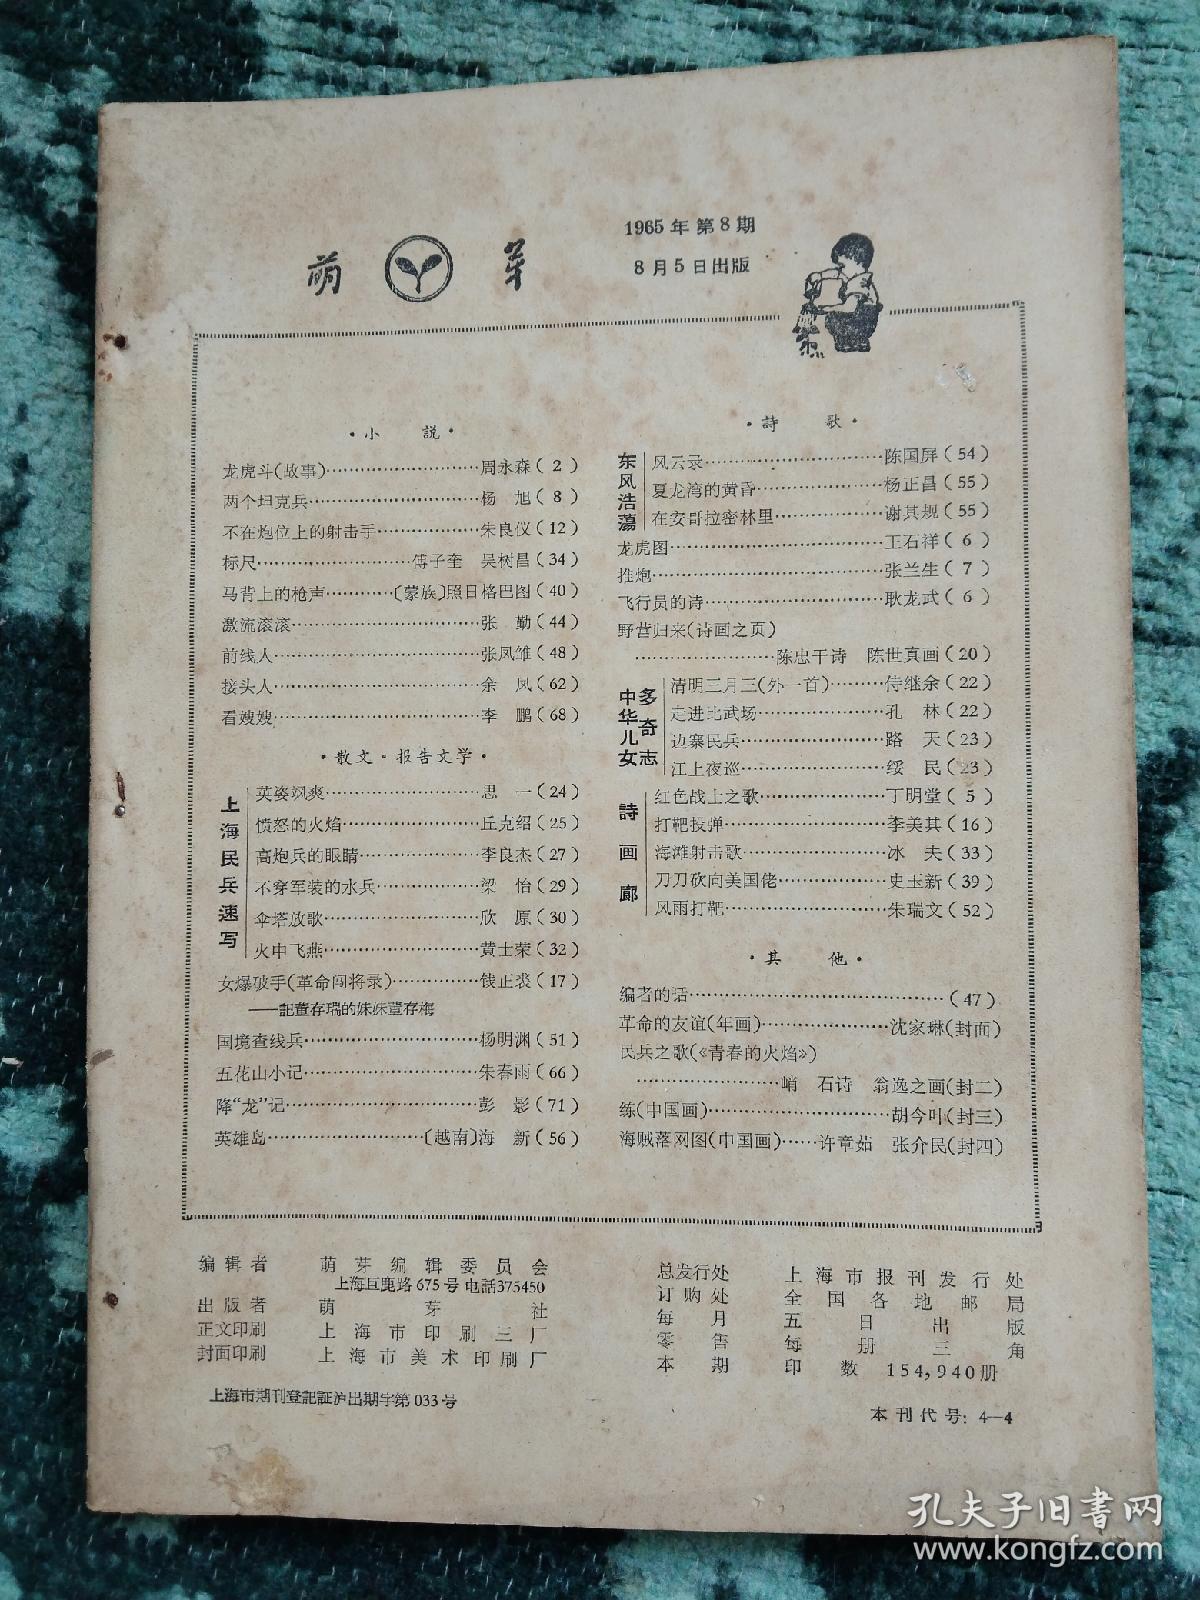 萌芽
1965年第8期
8月5日出版
·小 説·
龙虎斗(故事)…………周永森(2)
两个坦克兵…………杨 旭(8)
不在炮位上的射击手…………朱良仪(12)
标尺…………傅子奎 吴树昌(34)
马背上的枪声…………〔蒙族〕照日格巴图(40)
激流滚滚…………张 勤(44)
前线人…………张凤雏(48)
接头人…………余 凤(62)
看嫂嫂…………李 鹏(68)
·散文·报告文学·
上海民兵速写
英姿飒爽…………思 一(24)
愤怒的火焰…………丘克绍(25)
高炮兵的眼睛…………李良杰(27)
不穿军装的水兵…………梁 怡(29)
伞塔放歌…………欣 原(30)
火中飞燕…………黄士荣(32)
女爆破手(革命闯将录)…………钱正裘(17)
——記董存瑞的妹妹董存梅
国境查线兵…………杨明渊(51)
五花山小记…………朱春雨(66)
降“龙”记…………彭 影(71)
英雄岛…………〔越南〕海 新(56)
·詩 歌·
东风浩蕩
风云录…………陈国屏(54)
夏龙湾的黄昏…………杨正昌(55)
在安哥拉密林里…………谢其规(55)
龙虎图…………王石祥(6)
推炮…………张兰生(7)
飞行员的诗…………耿龙武(6)
野营归来(诗画之页)
…………陈忠干诗 陈世真画(20)
中华儿女多奇志
清明三月三(外一首)…………侍继余(22)
走进比武场…………孔 林(22)
边寨民兵…………路 天(23)
江上夜巡…………绥 民(23)
詩画廊
红色战士之歌…………丁明堂(5)
打靶投弹…………李美其(16)
海滩射击歌…………冰 夫(33)
刀刀砍向美国佬…………史玉新(39)
风雨打靶…………朱瑞文(52)
·其 他·
编者的话…………(47)
革命的友谊(年画)…………沈家琳(封面)
民兵之歌(《青春的火焰》)
…………峭 石诗 翁逸之画(封二)
练(中国画)…………胡今叶(封三)
海贼落网图(中国画)……许章茹 张介民(封四)
编辑者 萌芽编辑委员会
上海巨鹿路675号 电話375450
出版者 萌芽社
正文印刷 上海市印刷三厂
封面印刷 上海市美术印刷厂
上海市期刊登記証沪出期字第033号
总发行处 上海市报刊发行处
订购处 全国各地邮局
每月五日出版
零售每册三角
本期印数154,940册
本刊代号：4—4
孔夫子旧书网
www.kongfz.com